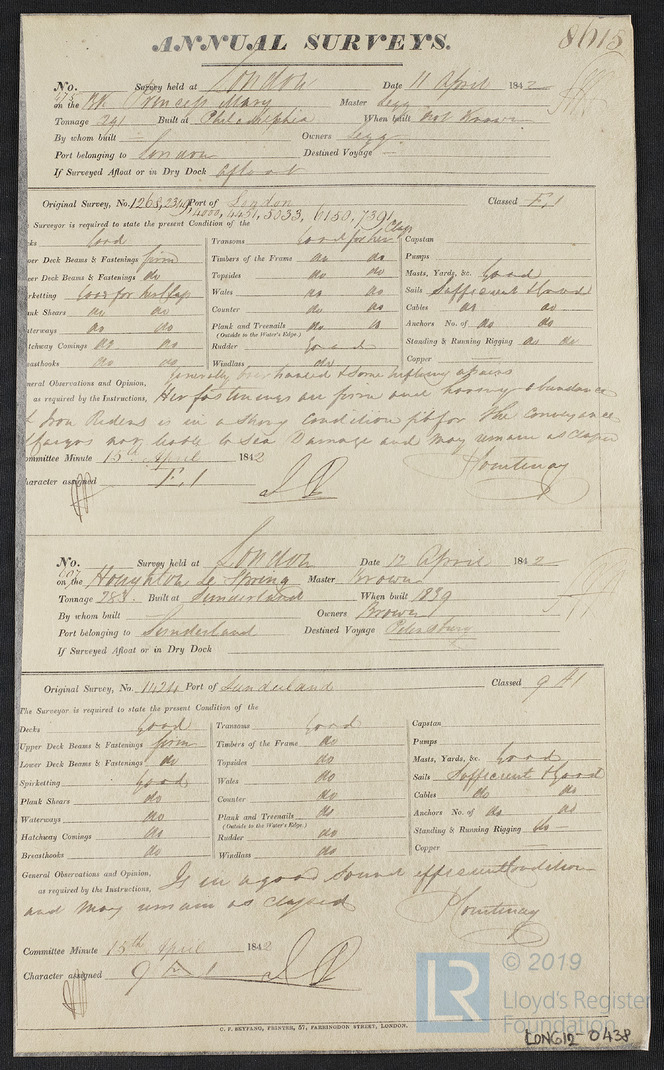 ANNUAL SURVEYS.
8615
No. Survey held at London Date 11 April 1842
on the Bk Princess Mary Master Legg
Tonnage 241 Built at Philadelphia When built not Known
By whom built Owners Legg
Port belonging to London Destined Voyage —
If Surveyed Afloat or in Dry Dock afloat
Original Survey, No. 1268, Port of London Classed E.1
4000, 4431, 5033, 6150, 7391
Surveyor is required to state the present Condition of the
Good Transoms Good for her Class Capstan
Deck Beams & Fastenings firm Timbers of the Frame do do Pumps
Deck Beams & Fastenings do Topsides do do Masts, Yards, &c. Good
Good for her Class Wales do do Sails Sufficient & Good
Shears do do Counter do do Cables do do
do do Plank and Treenails do do Anchors No. of do do
(Outside to the Water's Edge.)
Comings do do Rudder Good Standing & Running Rigging do do
do do Windlass do Copper
General Observations and Opinion, Generally overhauled & some repairs
as required by the Instructions, Her fastenings are firm and having abundance
Iron Riders is in a strong condition fit for the Conveyance
of Cargos not liable to Sea Damage and may remain as Classed
Committee Minute 15th April 1842 Courtenay
Character assigned E.1
No. Survey held at London Date 12 April 1842
on the Houghton Le Spring Master Brown
Tonnage 283 Built at Sunderland When built 1839
By whom built Owners Brown
Port belonging to Sunderland Destined Voyage Petersburg
If Surveyed Afloat or in Dry Dock
Original Survey, No. 1424 Port of Sunderland Classed 9 A1
The Surveyor is required to state the present Condition of the
Decks good Transoms Good Capstan
Upper Deck Beams & Fastenings firm Timbers of the Frame do Pumps
Lower Deck Beams & Fastenings do Topsides do Masts, Yards, &c. Good
Spirketting Good Wales do Sails Sufficient & Good
Plank Shears do Counter do Cables do do
Waterways do Plank and Treenails do Anchors No. of do do
(Outside to the Water's Edge.)
Hatchway Comings do Rudder do Standing & Running Rigging do
Breasthooks do Windlass do Copper
General Observations and Opinion, Is in a good Sound efficient Condition
as required by the Instructions,
and may remain as Classed
Courtenay
Committee Minute 15th April 1842
Character assigned 9 A 1
C. F. SEYFANG, PRINTER, 57, FARRINGDON STREET, LONDON.
LR © 2019
Lloyd's Register
Foundation
LON612-0438